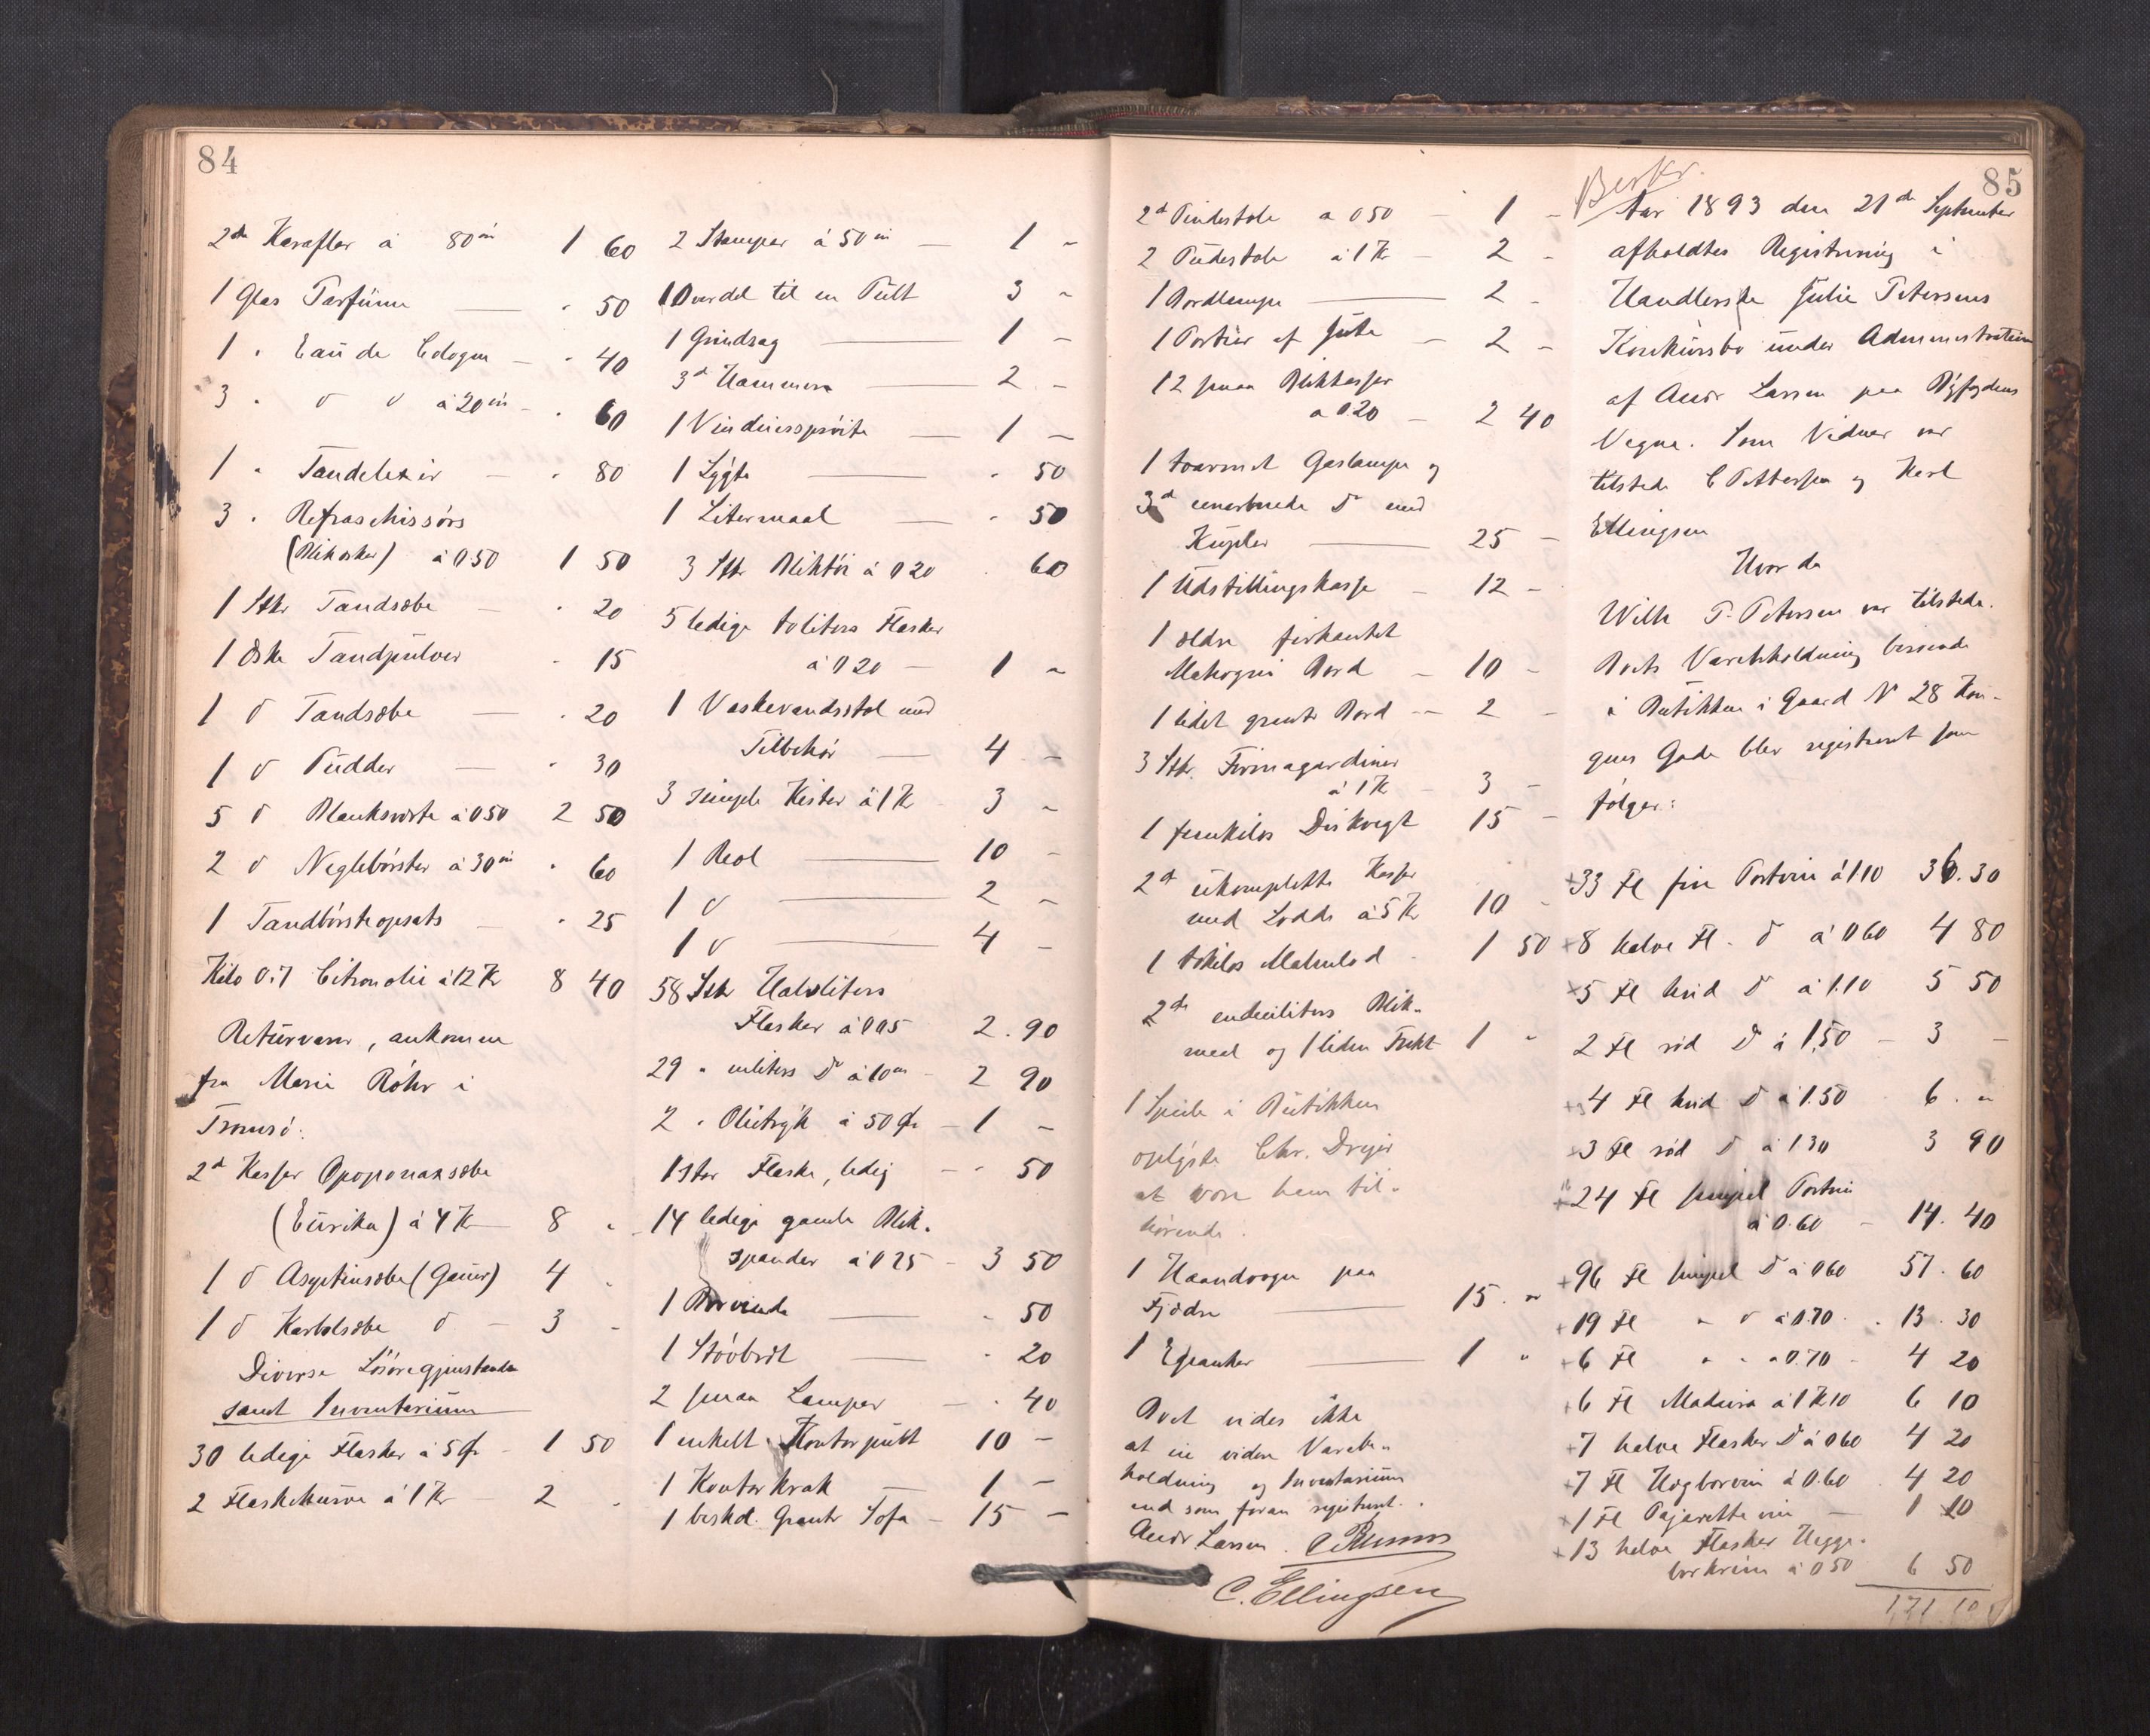 84
2de Karafler á 80øri 1 60
1 Glas Parfüme — " 50
1 " Eau de Cologne — " 40
3 " d d á 20øri - " 60
1 " Tandelexir — " 80
3 " Refraschissörs
(Blikæsker) á 0 50 1 50
1 Stk Tandsæbe — " 20
1 Æske Tandpulver - 15
1 d Tandsæbe — " 20
1 d Pudder — " 30
5 d Blanksværte á 0 50 2 50
2 d Neglebörster á 30øri " 60
1 Tandbörsteopsats — " 25
Kilo 0.7 Citronolie á 12 Kr 8 40
Returvarer, ankomne
fra Marie Röhr i
Tromsö:
2d Kasser Opoponaxsæbe
(Eurika) á 4 Kr — 8 "
1 d Asyptinsæbe (Gauer) 4 "
1 d Karbolsæbe d — 3 -
Diverse Lösöregjenstande
samt Inventarium
30 ledige Flasker á 5 Ør - 1 50
2 Flaskekurve á 1 Kr — 2 "
2 Stamper á 50øri — 1 "
1 Overdel til en Pult 3 "
1 Grindsag — 1 -
3d Hammere — 2 -
1 Vinduesspröite — 1 -
1 Lygte — " 50
1 Litermaal — " 50
3 Stk Bliktöi á 0 20 " 60
5 ledige toliters Flasker
á 0 20 — 1 "
1 Vaskevandsstol med
Tilbehör — 4 -
3 simple Kister á 1 Kr 3 "
1 Reol — 10 -
1 d — 2 "
1 d — 4 -
58 Stk Halvliters
Flasker á 0 05 2.90
29 " enliters Do á 10øre - 2 90
2 " Olietryk á 50 Ør - 1 -
1 stor Flaske, ledig — " 50
14 ledige gamle Blik-
spander á 0 25 - 3 50
1 Borvinde — " 50
1 Stövbræt — " 20
2 smaa Lamper — " 40
1 enkelt Kontorpult 10 -
1 Kontorkrak — 1 -
1 beskd. Grantr Sofa - 15 -
2d Pindestole a 0 50 - 1 -
2 Pudestole á 1 Kr - 2 -
1 Bordlampe — 2 -
1 Portier af Jute - 2 -
12 smaa Blikkasser
a 0 20 - 2 40
1 toarmet Gaslampe og
3d enarmede Do med
Kupler — 25 -
1 Udstillingskasse - 12 -
1 ældre firkantet
Mahogni Bord - 10 -
1 lidet grantr Bord — 2 -
3 Stk. Firmagardiner
á 1 Kr - 3 -
1 femkilos Diskvegt 15 -
2d ukomplette Kasser
med Lodde á 5 Kr 10 -
1 tokilos Malmlod - 1 50
2de endeciliters Blik-
maal og 1 liden Trekt 1 "
1 Speile i Butikken
oplyste Chr. Dreyer
at være ham til-
hörende.
1 Haandvogn paa
Fjædre — 15. "
1 Eganker — 1 "
Boet vides ikke
at eie videre Varebe-
holdning og Inventarium
end som foran registreret.
Andr Larsen.
C. Ellingsen
Berkr.
85
Aar 1893 den 21de September
afholdtes Registrering i
Handlerske Julie Petersens
Konkursbo under Administration
af Andr Larsen paa Byfogdens
Vegne. Som Vidner var
tilstede C Pettersen og Karl
Ellingsen
Hvor da
Wilh P. Petersen var tilstede.
Boets Varebeholdning beroende
i Butikken i Gaard No 28 Kon-
gens Gade blev registreret som
fölger:
+33 Fl fin Portvin á 1 10 36.30
+8 halve Fl. d á 0 60 4 80
+5 Fl hvid Do á 1.10 5 50
2 Fl röd Do á 1,50 - 3 -
+4 Fl hvid Do á 1.50 6. "
+3 Fl röd Do á 1 30 3 90
+24 Fl simpel Portvin
á 0.60 - 14.40
+96 Fl simpel Do á 0 60 57.60
+19 Fl " d á 0.70 . 13.30
+6 Fl " " a 0.70 - 4 20
+6 Fl Madeira á 1 Kr 10 6 10
+7 halve Flasker Do á 0 60 4 20
+7 Fl Hægborvin á 0.60 . 4 20
+1 Fl Pajarette vin — 1 10
+13 halve Flasker Hegge-
borkvin á 0 50 6 50
171 10